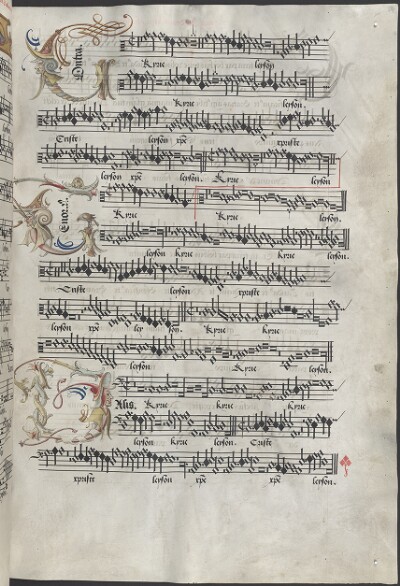 Contra.
Kyrie leyson
Kyrie leyson.
Criste leyson xpē xpriste
leyson xpē leyson. Kyrie leyson
Tenor.
Kyrie Kyrie leyson.
leyson Kyrie Kyrie leyson.
Criste leyson xpriste
leyson xpē ley son. Kyrie Kyrie
leyson Kyrie leyson.
Basis. Kyrie Kyrie Kyrie
leyson Kyrie leyson. Criste
xpriste leyson xpē xpē leyson.